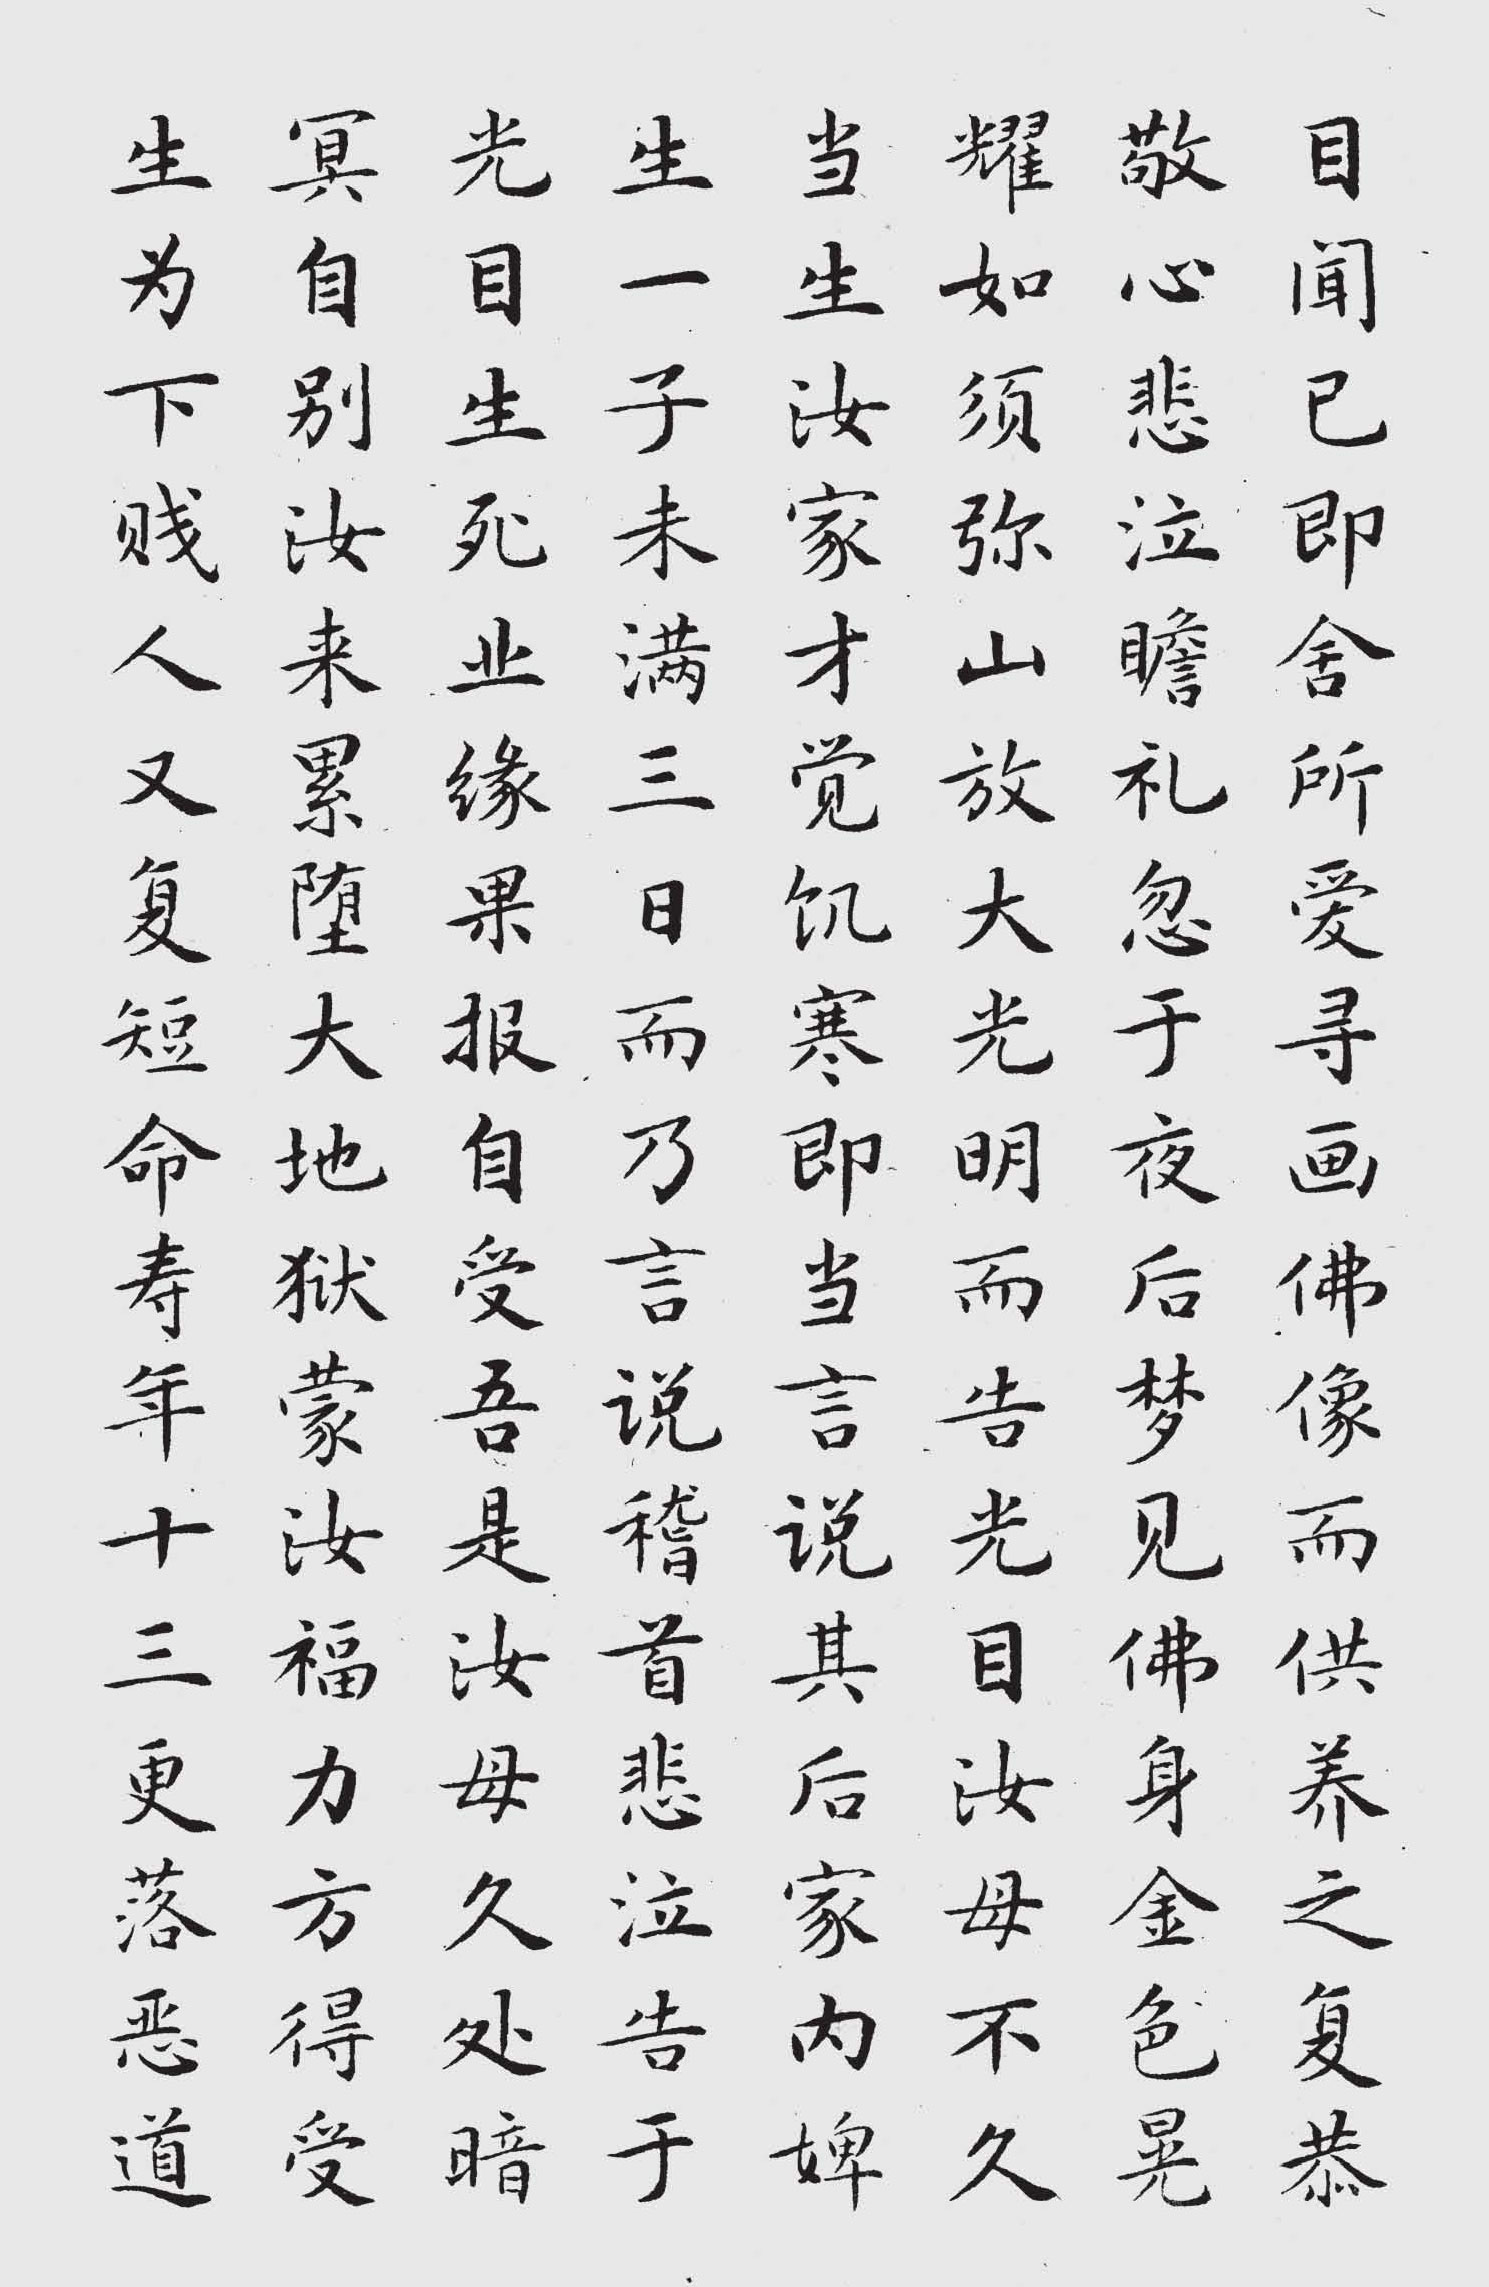 目闻已即舍所爱寻画佛像而供养之复恭
敬心悲泣瞻礼忽于夜后梦见佛身金色晃
耀如须弥山放大光明而告光目汝母不久
当生汝家才觉饥寒即当言说其后家内婢
生一子未满三日而乃言说稽首悲泣告于
光目生死业缘果报自受吾是汝母久处暗
冥自别汝来累堕大地狱蒙汝福力方得受
生为下贱人又复短命寿年十三更落恶道